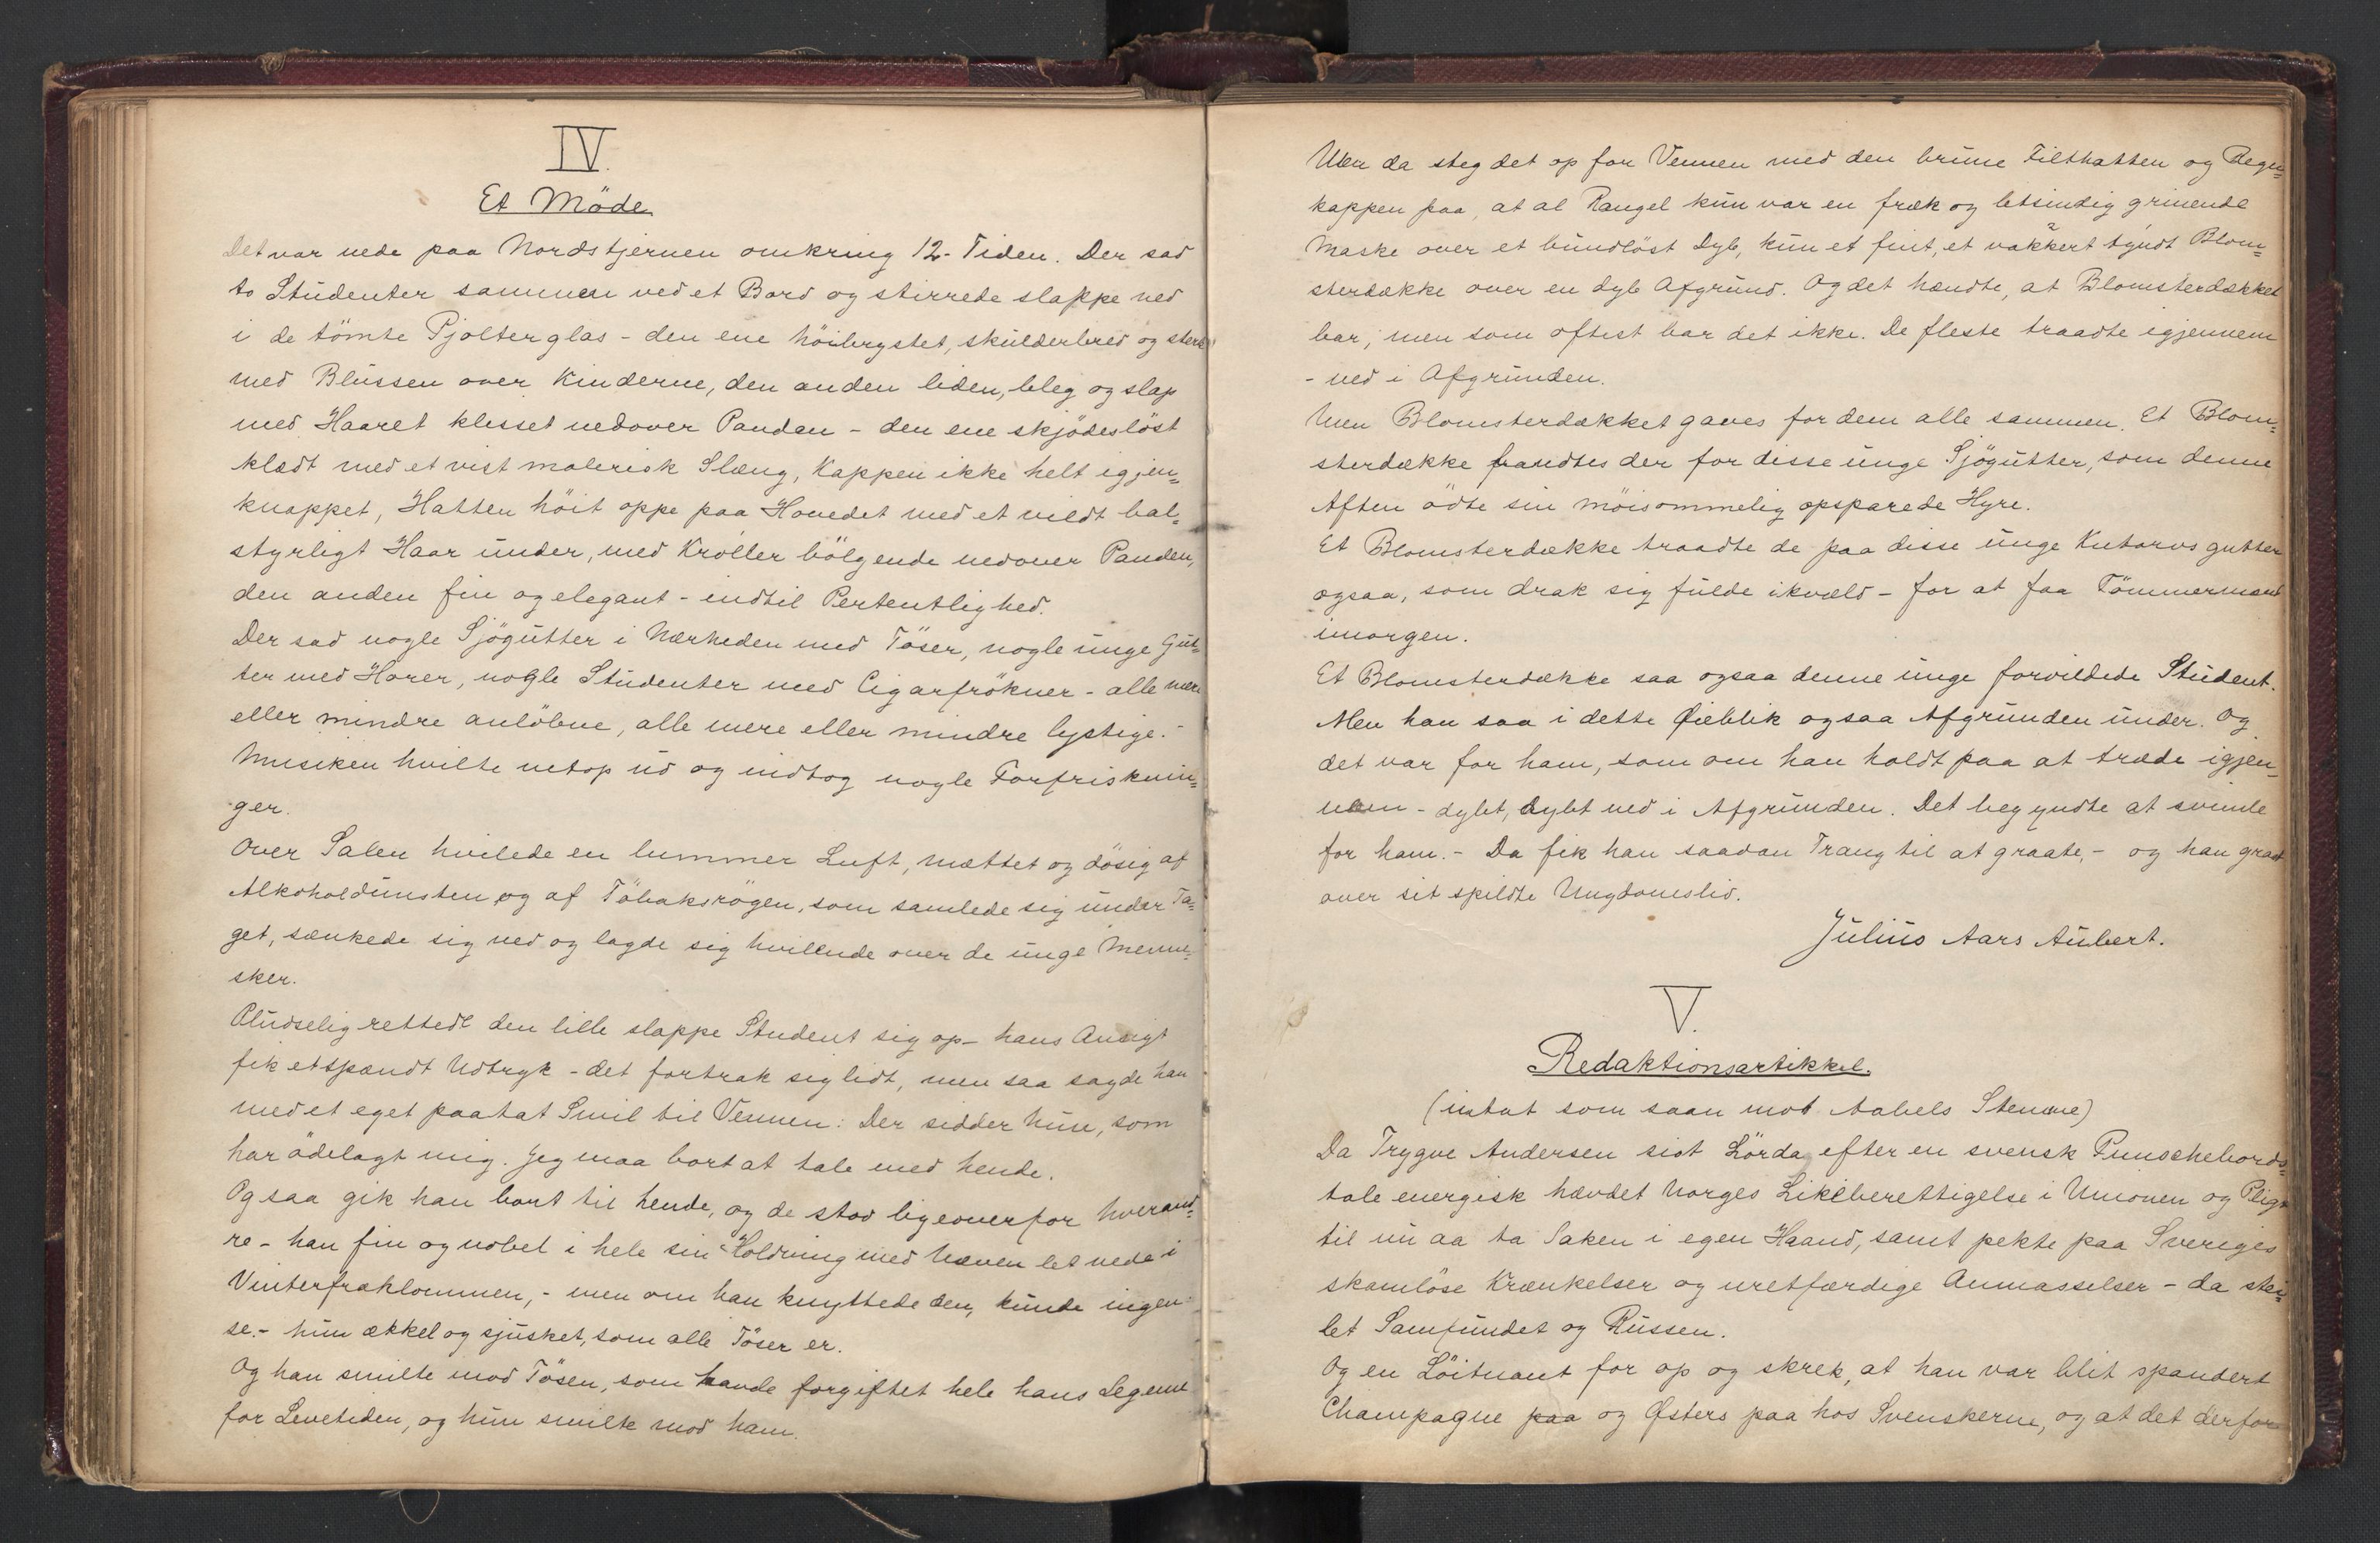 IV.
Et Möde.
Det var nede paa Nordstjernen omkring 12-Tiden. Der sad
to Studenter sammen ved et Bord og stirrede slappe ned
i de tömte Pjolterglas - den ene höibrystet, skulderbred og sterk
med Blussen over Kinderne, den anden liden, bleg og slap
med Haaret klesset nedover Pandan - den ene skjödeslöst
klædt med et vist malerisk Slæng, Kappen ikke helt igjen=
knappet, Hatten höit oppe paa Hovedet med et vildt bal=
styrligt Haar under, med Kröller bölgende nedover Panden,
den anden fin og elegant - indtil Pertentlighed.
Der sad nogle Sjögutter i Nærheden med Töser, nogle unge Gut=
ter med Horer, nogle Studenter med Cigarfrökner - alle mere
eller mindre anlöbne, alle mere eller mindre lystige. -
Musiken hvilte netop ud og indtog nogle Forfrisknin=
ger.
Over Salen hvilede en lummer Luft, mættet og dösig af
Alkoholdunsten og af Tobaksrögen, som samlede sig under Ta=
get, sænkede sig ned og lagde sig hvilende over de unge Menne=
sker.
Pludselig rettede den lille slappe Student sig op - hans Ansigt
fik et spændt Udtryk - det fortrak sig lidt, men saa sagde han
med et eget paatat Smil til Vennen: Der sidder hun, som
har ödelagt mig. Jeg maa bort at tale med hende.
Og saa gik han bort til hende, og de stod ligeoverfor hverand=
re - han fin og nobel i hele sin Holdning med Næven let nede i
Vinterfraklommen, - men om han knyttede den, kunde ingen
se. - hun ækkel og sjusket, som alle Töser er.
Og han smilte mod Tösen, som havde forgiftet hele hans Legeme
for Levetiden, og hun smilte mod ham.
Men da steg det op for Vennen med den brune Filthatten og Regn=
kappen paa, at al Rangel kun var en fræk og letsindig grinende
Maske over et bundlöst Dyb, kun et fint, et vakkert tyndt Blom=
sterdække over en dyb Afgrund. Og det hændte, at Blomsterdækket
bar, men som oftest bar det ikke. De fleste traadte igjennem
- ned i Afgrunden.
Men Blomsterdækket gaves for dem alle sammen. Et Blom=
sterdække fandtes der for disse unge Sjögutter, som denne
Aften ödte sin möisommelig opsparede Hyre.
Et Blomsterdække traadte de paa disse unge Kutorvsgutter
ogsaa, som drak sig fulde ikvæld - for at faa Tömmermænd
imorgen.
Et Blomsterdække saa ogsaa denne unge forvildede Student.
Men han saa i dette Øieblik ogsaa Afgrunden under. Og
det var for ham, som om han holdt paa at træde igjen=
nem - dybt, dybt ned i Afgrunden. Det begyndte at svimle
for ham. - Da fik han saadan Trang til at graate, - og han graat
over sit spildte Ungdomsliv.
Julius Aars Aubert.
V.
Redaktionsartikkel.
(intat som saan mot Aabels Stemme)
Da Trygve Andersen sist Lörda efter en svensk Punschebords=
tale energisk hævdet Norges Likeberettigelse i Unionen og Pligt
til nu aa ta Saken i egen Haand, samt pekte paa Sveriges
skamlöse Krænkelser og uretfærdige Anmasselser - da stei=
let Samfundet og Russen.
Og en Löitnant for op og skrek, at han var blit spandert
Champagne paa og Østers paa hos Svenskerne, og at det derfor